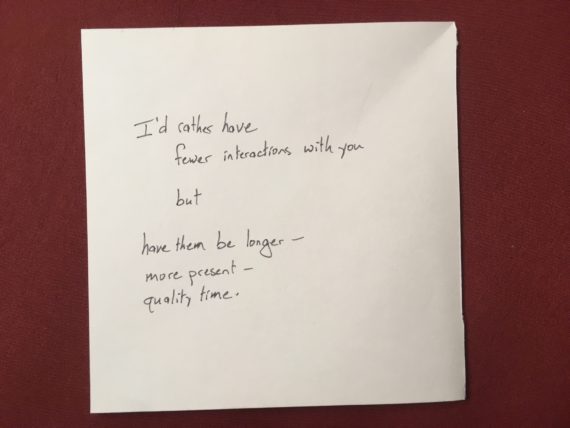 I'd rather have
fewer interactions with you
but
have them be longer –
more present –
quality time.